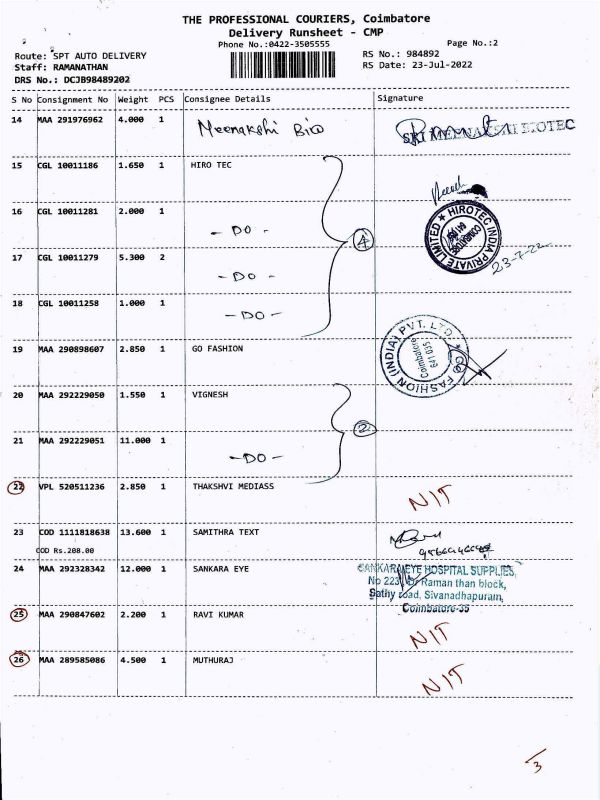 THE PROFESSIONAL COURIERS, Coimbatore
Delivery Runsheet - CMP
Phone No.:0422-3505555
Page No.:2
Route: SPT AUTO DELIVERY
RS No.: 984892
Staff: RAMANATHAN
RS Date: 23-Jul-2022
DRS No.: DCJB98489202
S No Consignment No Weight PCS Consignee Details Signature
14 MAA 291976962 4.000 1 Meenakshi Bio
SRI MEENAKSHI BIOTEC
15 CGL 10011186 1.650 1 HIRO TEC
16 CGL 10011281 2.000 1 - DO -
HIROTEC INDIA PRIVATE LIMITED ★
COIMBATORE
17 CGL 10011279 5.300 2 - DO -
4
23-7-22
18 CGL 10011258 1.000 1 - DO -
19 MAA 290898607 2.850 1 GO FASHION
GO FASHION (INDIA) PVT. LTD. ★
Coimbatore
641 035
20 MAA 292229050 1.550 1 VIGNESH
2
21 MAA 292229051 11.000 1 - DO -
22 VPL 520511236 2.850 1 THAKSHVI MEDIASS N/T
23 COD 1111818638 13.600 1 SAMITHRA TEXT
COD Rs.208.00
24 MAA 292328342 12.000 1 SANKARA EYE
SANKARA EYE HOSPITAL SUPPLIES,
No 223, Raman than block,
Sathy road, Sivanadhapuram,
Coimbatore-35
25 MAA 290847602 2.200 1 RAVI KUMAR N/T
26 MAA 289585086 4.500 1 MUTHURAJ N/T
3